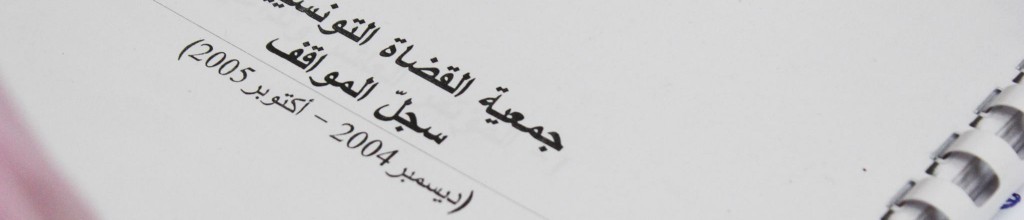 جمعية القضاة التونسيين
سجلّ المواقف
(ديسمبر 2004 - أكتوبر 2005)